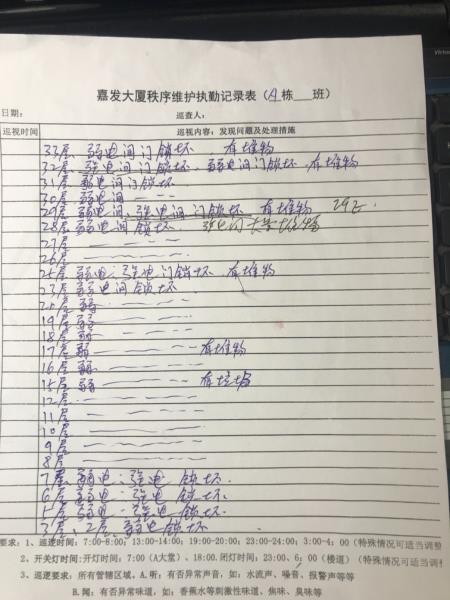 嘉发大厦秩序维护执勤记录表（A栋___班）
日期： 巡查人：
巡视时间 巡视内容：发现问题及处理措施
33层 弱电间门锁坏 有堆物
32层 强电间门锁坏. 弱电间门锁坏. 有堆物
31层 弱电间门锁坏
30层 弱电间
29层 弱电间、强电间门锁坏 有堆物
28层 弱电间 锁坏. 强电间 堆物
27层
26层
25层 弱电、强电门锁坏 有堆物
23层 弱电间锁坏
20层 弱
19层 弱
18层 弱
17层 弱 有堆物
16层 弱
15层 弱 有垃圾
12层
11层
10层
9层
8层
7层 弱电、强电 锁坏
6层 弱电、强电 锁坏.
5层 弱电、强电锁坏
3层、2层、弱电锁坏
要求：1、巡逻时间：7:00-8:00；13:00-14:00；19:00-20:00；23:00-24:00；3:00-4：00（特殊情况可适当调整
2、开关灯时间:开灯时间：7:00（A大堂）、18:00.闭灯时间：23:00、6：00（楼道）（特殊情况可适当调
3、巡逻要求：所有管辖区域，A.听：有否异常声音，如：水流声、噪音、报警声等等
B.闻：有否异常味道，如：香蕉水等刺激性味道、焦味、臭味等